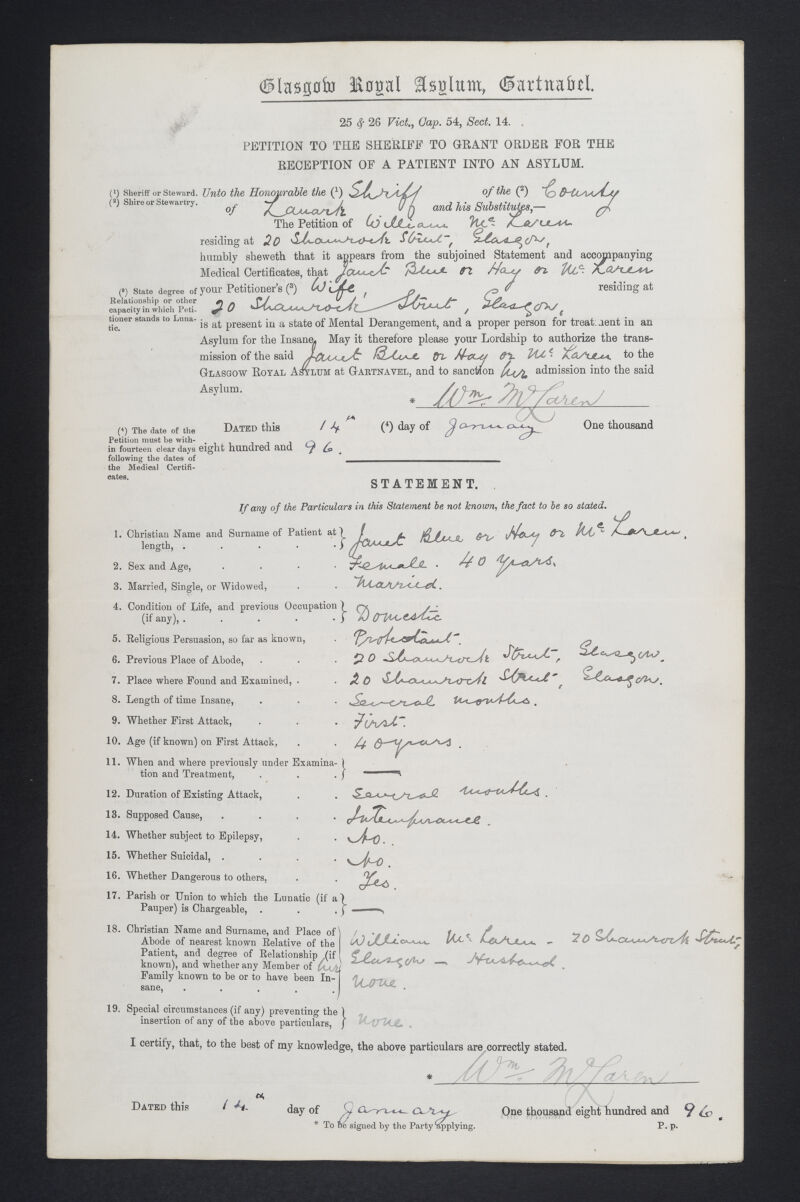 Glasgow Royal Asylum, Gartnavel.
25 & 26 Vict., Cap. 54, Sect. 14.
PETITION TO THE SHERIFF TO GRANT ORDER FOR THE
RECEPTION OF A PATIENT INTO AN ASYLUM.
(1) Sheriff or Steward.
(2) Shire or Stewartry.
Unto the Honourable the (1) Shriff of the (2) County
of Lanark and his Substitutes,—
The Petition of William Mc Laren
residing at 20 Shamrock Street, Glasgow,
humbly sheweth that it appears from the subjoined Statement and accompanying
Medical Certificates, that Janet Blue or Hay or Mc Laren
(3) State degree of
Relationship or other
capacity in which Peti-
tioner stands to Luna-
tic.
your Petitioner's (3) Wife, residing at
20 Shamrock Street, Glasgow,
is at present in a state of Mental Derangement, and a proper person for treatment in an
Asylum for the Insane. May it therefore please your Lordship to authorize the trans-
mission of the said Janet Blue or Hay or Mc Laren to the
GLASGOW ROYAL ASYLUM AT GARTNAVEL, and to sanction her admission into the said
Asylum.
* Wm. McLaren
(4) The date of the
Petition must be with-
in fourteen clear days
following the dates of
the Medical Certifi-
cates.
DATED this 14th (4) day of January One thousand
eight hundred and 96.
STATEMENT.
If any of the Particulars in this Statement be not known, the fact to be so stated.
1. Christian Name and Surname of Patient at
length, . . . . . Janet Blue or Hay or Mc Laren.
2. Sex and Age, . . . . Female. 40 years.
3. Married, Single, or Widowed, . . Married.
4. Condition of Life, and previous Occupation
(if any), . . . . . Domestic
5. Religious Persuasion, so far as known, . Protestant.
6. Previous Place of Abode, . . . 20 Shamrock Street, Glasgow.
7. Place where Found and Examined, . . 20 Shamrock Street, Glasgow.
8. Length of time Insane, . . . Several months.
9. Whether First Attack, . . . First.
10. Age (if known) on First Attack, . . 40 years.
11. When and where previously under Examina-
tion and Treatment, . . . —
12. Duration of Existing Attack, . . Several months.
13. Supposed Cause, . . . . Intemperance.
14. Whether subject to Epilepsy, . . No.
15. Whether Suicidal, . . . . No.
16. Whether Dangerous to others, . . Yes.
17. Parish or Union to which the Lunatic (if a
Pauper) is Chargeable, . . . —
18. Christian Name and Surname, and Place of
Abode of nearest known Relative of the
Patient, and degree of Relationship (if
known), and whether any Member of her
Family known to be or to have been In-
sane, . . . . .
William Mc Laren - 20 Shamrock Street,
Glasgow — Husband.
None.
19. Special circumstances (if any) preventing the
insertion of any of the above particulars, None.
I certify, that, to the best of my knowledge, the above particulars are correctly stated.
* Wm. McLaren
DATED this 14th day of January One thousand eight hundred and 96.
* To be signed by the Party applying.
P. p.